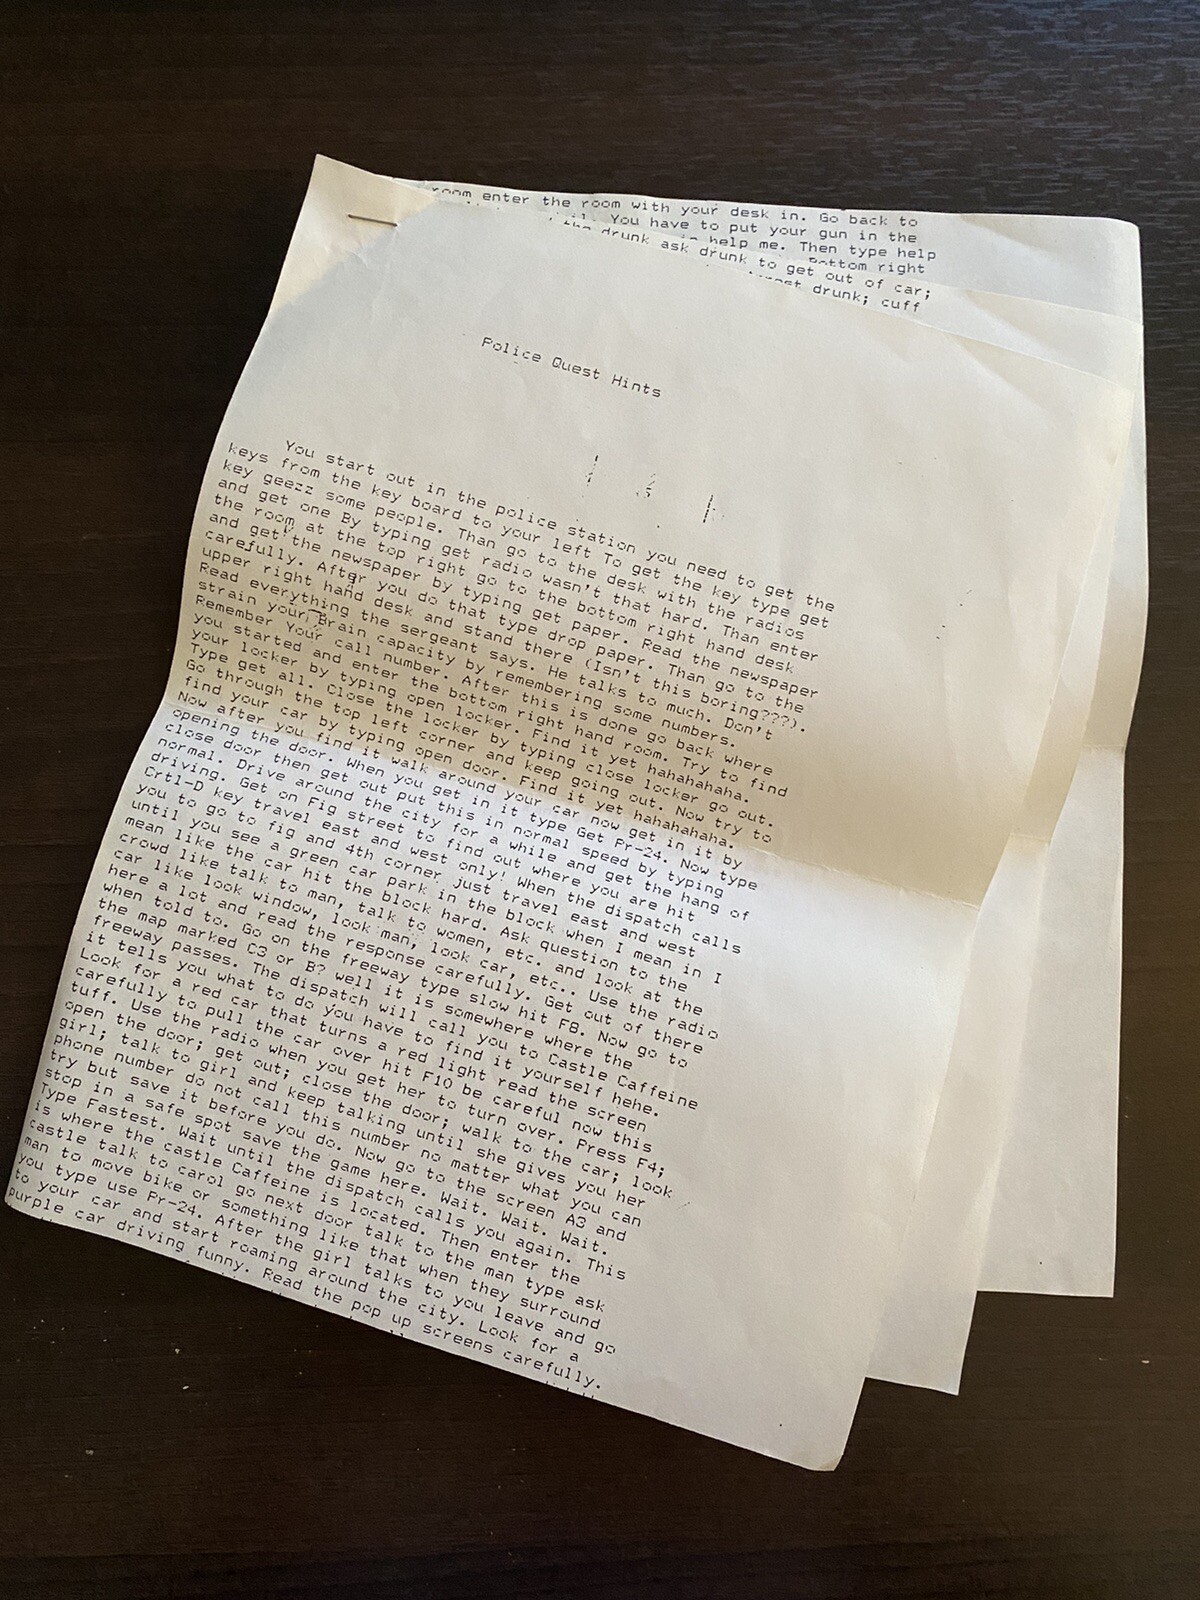 room enter the room with your desk in. Go back to
You have to put your gun in the
help me. Then type help
Bottom right
drunk ask drunk to get out of car;
drunk; cuff
Police Quest Hints
You start out in the police station you need to get the
keys from the key board to your left To get the key type get
key geezz some people. Than go to the desk with the radios
and get one By typing get radio wasn't that hard. Than enter
the room at the top right go to the bottom right hand desk
and get the newspaper by typing get paper. Read the newspaper
carefully. After you do that type drop paper. Than go to the
upper right hand desk and stand there (Isn't this boring???).
Read everything the sergeant says. He talks to much. Don't
strain your Brain capacity by remembering some numbers.
Remember Your call number. After this is done go back where
you started and enter the bottom right hand room. Try to find
your locker by typing open locker. Find it yet hahahaha.
Type get all. Close the locker by typing close locker go out.
Go through the top left corner and keep going out. Now try to
find your car by typing open door. Find it yet hahahahaha.
Now after you find it walk around your car now get in it by
opening the door. When you get in it type Get Pr-24. Now type
close door then get out put this in normal speed by typing
normal. Drive around the city for a while and get the hang of
driving. Get on Fig street to find out where you are hit
Crtl-D key travel east and west only! When the dispatch calls
you to go to fig and 4th corner just travel east and west
until you see a green car park in the block when I mean in I
mean like the car hit the block hard. Ask question to the
crowd like talk to man, talk to women, etc. and look at the
car like look window, look man, look car, etc.. Use the radio
here a lot and read the response carefully. Get out of there
when told to. Go on the freeway type slow hit F8. Now go to
the map marked C3 or B? well it is somewhere where the
freeway passes. The dispatch will call you to Castle Caffeine
it tells you what to do you have to find it yourself hehe.
Look for a red car that turns a red light read the screen
carefully to pull the car over hit F10 be careful now this
tuff. Use the radio when you get her to turn over. Press F4;
open the door; get out; close the door; walk to the car; look
girl; talk to girl and keep talking until she gives you her
phone number do not call this number no matter what you can
try but save it before you do. Now go to the screen A3 and
stop in a safe spot save the game here. Wait. Wait. Wait.
Type Fastest. Wait until the dispatch calls you again. This
is where the castle Caffeine is located. Then enter the
castle talk to carol go next door talk to the man type ask
man to move bike or something like that when they surround
you type use Pr-24. After the girl talks to you leave and go
to your car and start roaming around the city. Look for a
purple car driving funny. Read the pop up screens carefully.